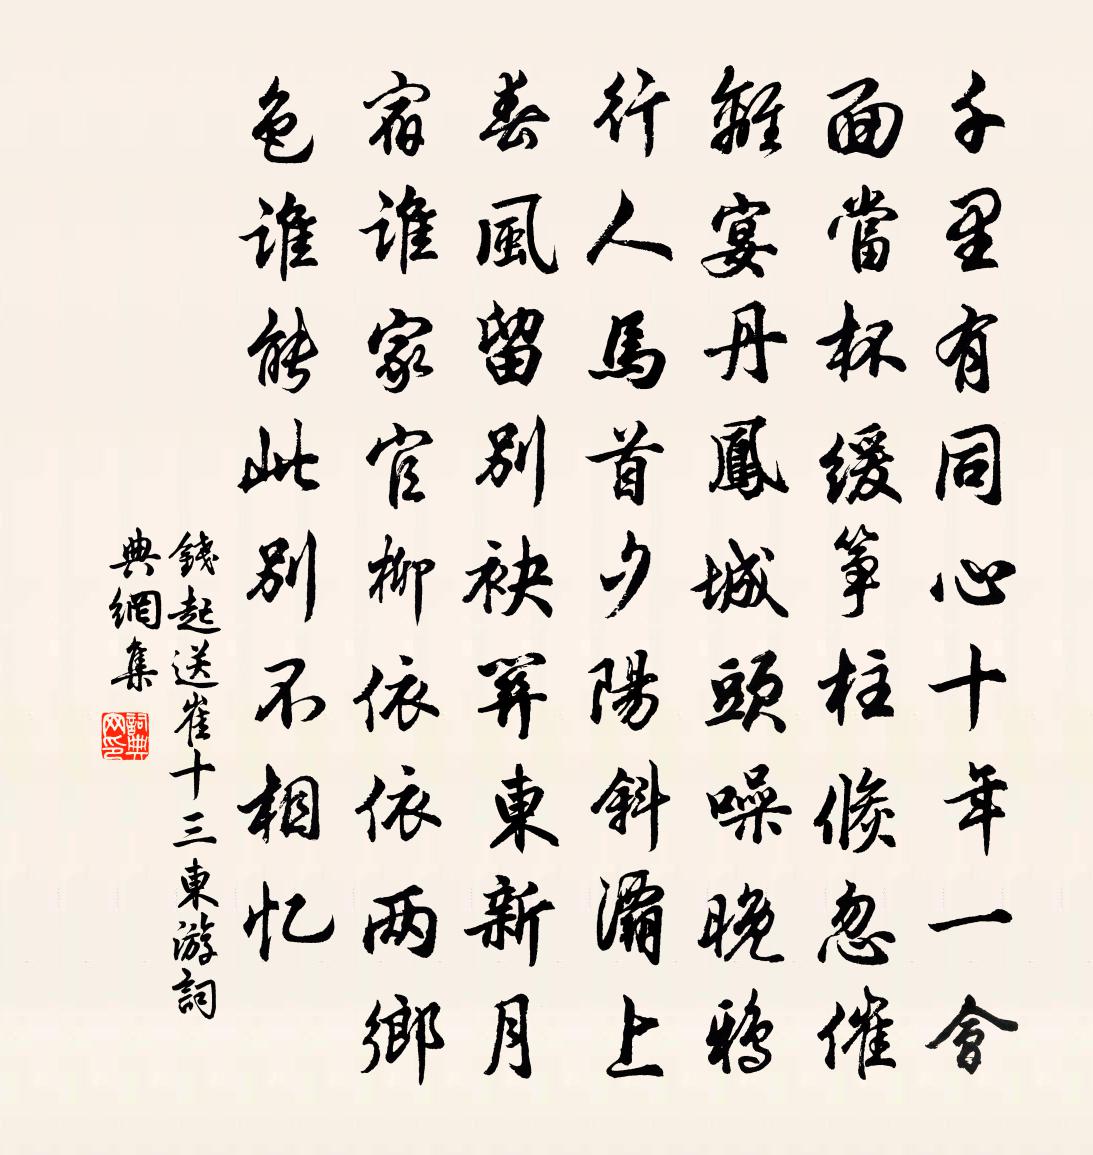 千里有同心十年一會
面當杯緩箏柱倏忽催
離宴丹鳳城頭噪晚鴉
行人馬首夕陽斜灞上
春風留別袂關東新月
宿誰家官柳依依两鄉
色誰能此別不相忆
錢起送崔十三東游詞
典網集
詞典网印